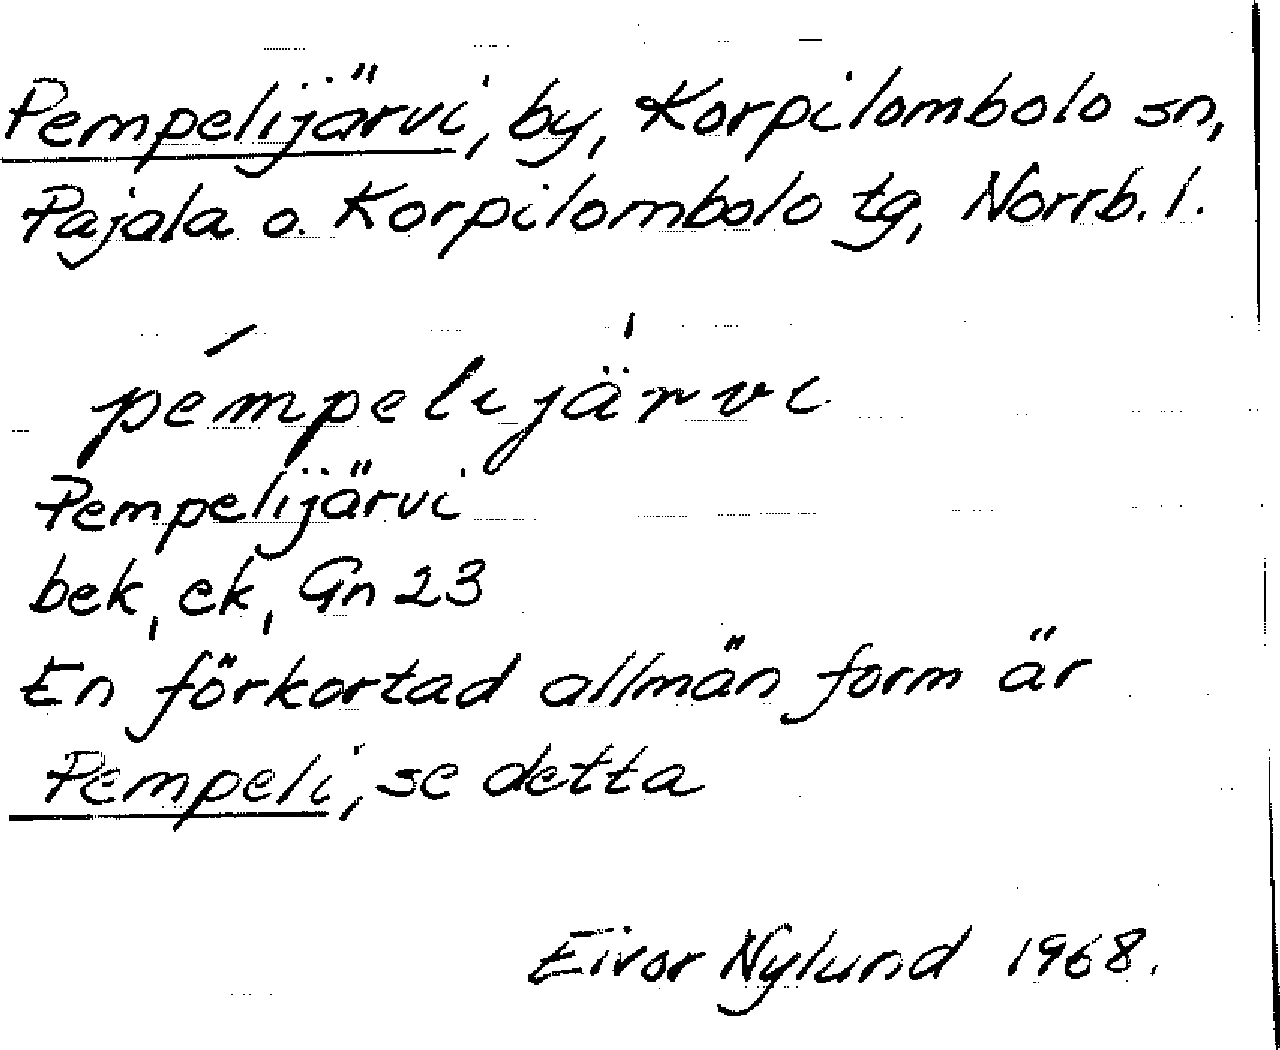 Pempelijärvi, by, Korpilombolo sn,
Pajala o. Korpilombolo tg, Norrb. l.
pémpelijä'rvi
Pempelijärvi
bek, ek, Gn 23
En förkortad allmän form är
Pempeli, se detta
Eivor Nylund 1968.